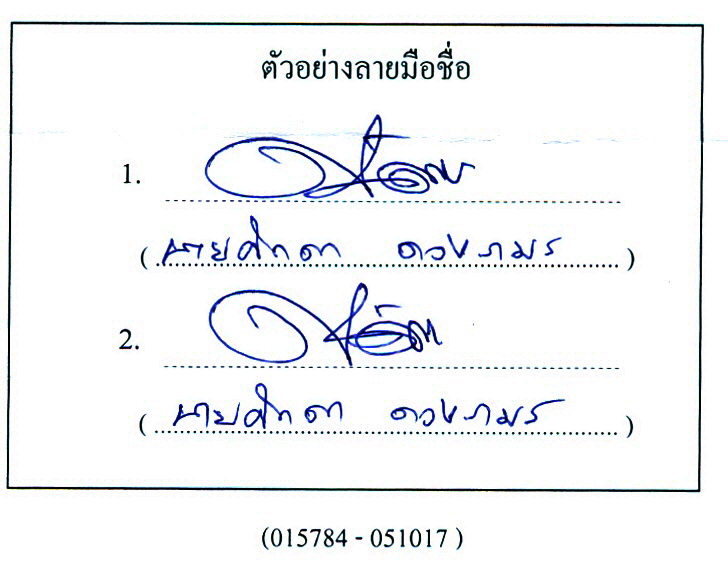 ตัวอย่างลายมือชื่อ
1.
(นายศักดา ดวงภมร)
2.
(นายศักดา ดวงภมร)
(015784 - 051017 )